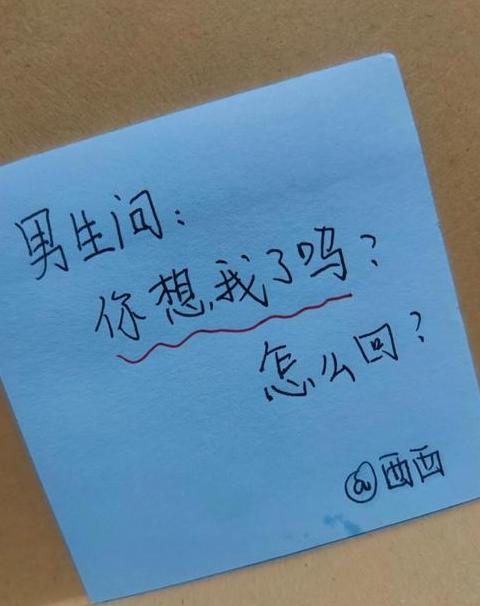 男生问：
你想我了吗？
怎么回？
@西西